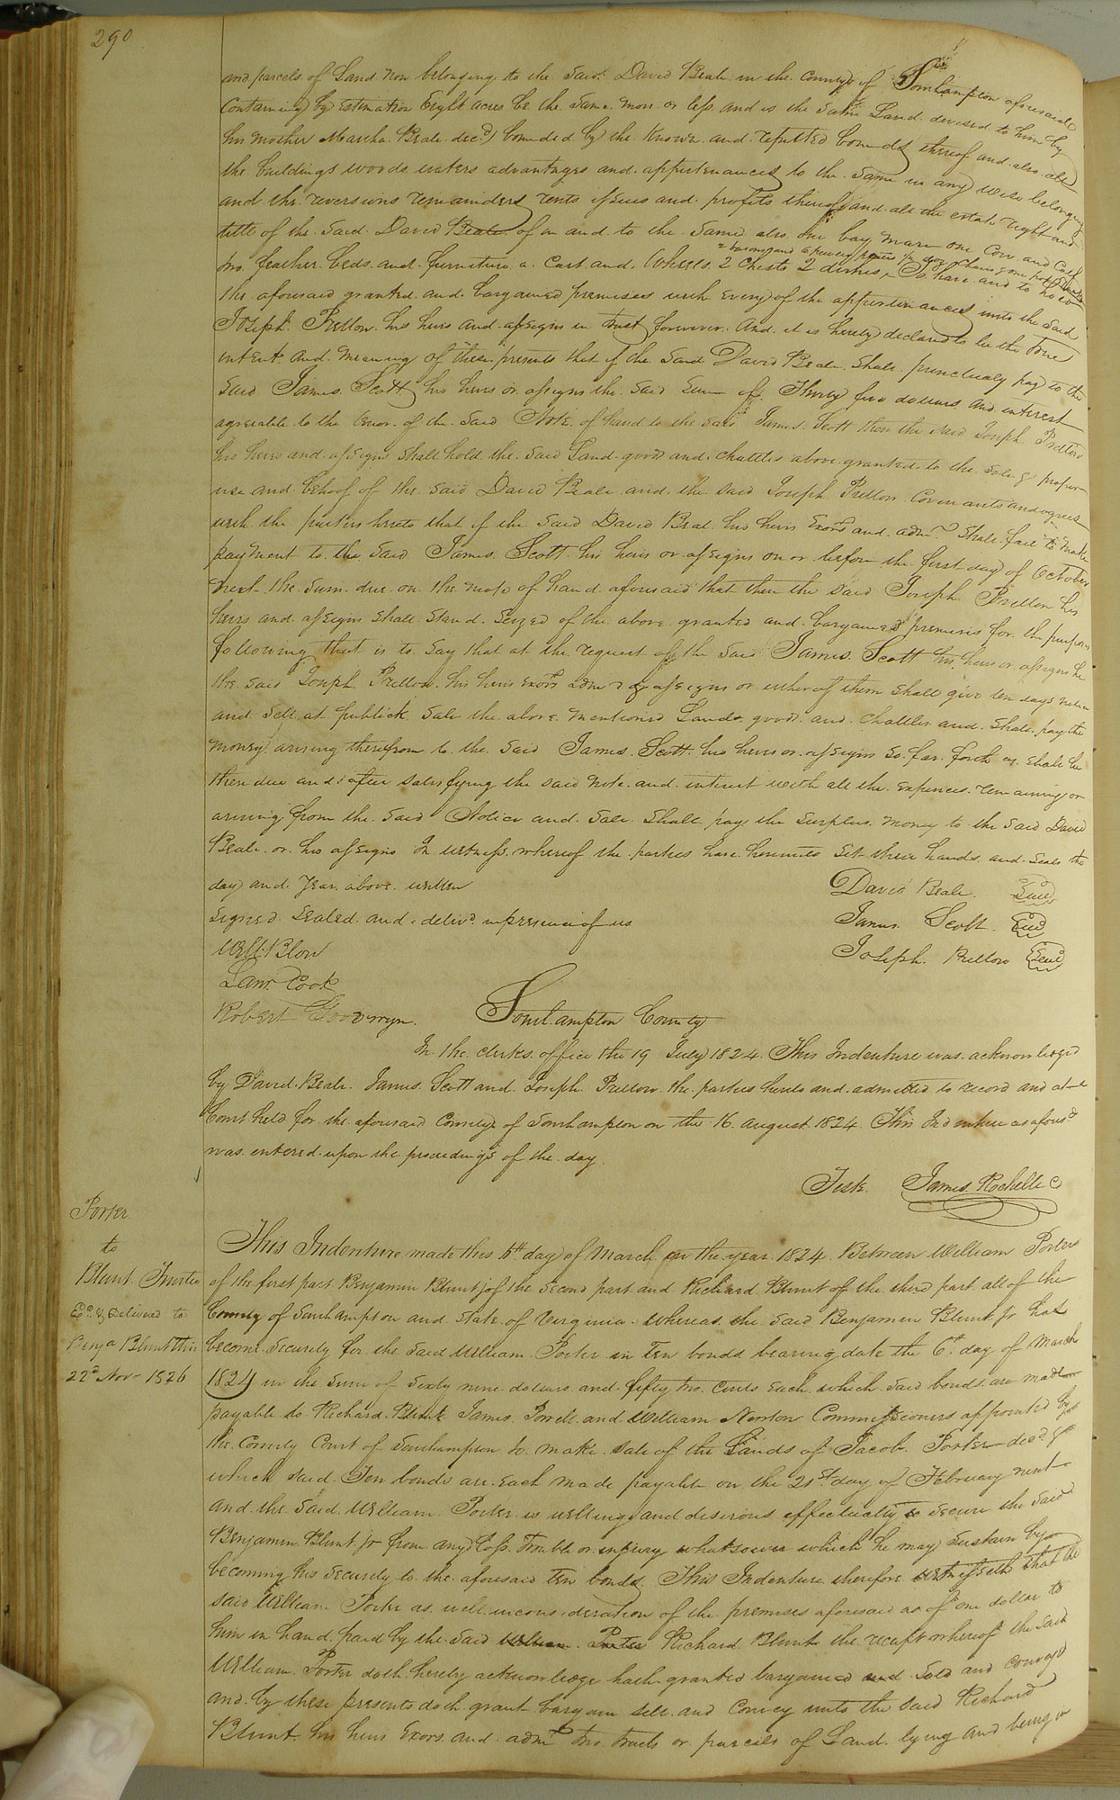 290
and parcels of Land now belonging to the said David Beale in the county of Southampton aforesaid
Containing by Estimation Eight acres be the same more or less and is the same Land devised to him by
his mother Martha Beale decd) bounded by the known and reputed bounds thereof and also all
the buildings woods waters advantages and appurtenances to the same in any wise belonging
and the reversions remainders rents issues and profits thereof and all the estate right and
title of the said David Beale of in and to the same also one bay mare one Cow and Calf
two feather beds and furniture a Cart and Wheels 2 Chests 2 dishes To have and to hold
the aforesaid granted and bargained premises with every of the appurtenances unto the said
Joseph Prellow his heirs and assigns in trust forever And it is hereby declared to be the true
intent and meaning of these presents that if the said David Beale shall punctually pay to the
said James Scott his heirs or assigns the said sum of Thirty five dollars and interest
agreeable to the tenor of the said Note of hand to the said James Scott then the said Joseph Prellow
his heirs and assigns shall hold the said Land goods and chattles above granted to the sole & proper
use and behoof of the said David Beale and the said Joseph Prellow Covenants and agrees
with the parties hereto that if the said David Beal his heirs Exors and admrs shall fail to make
payment to the said James Scott his heirs or assigns on or before the first day of October
next the sum due on the note of hand aforesaid that then the said Joseph Prellow his
heirs and assigns shall stand seized of the above granted and bargained premises for the purposes
following that is to say that at the request of the said James Scott his heirs or assigns he
the said Joseph Prellow his heirs Exors admrs or assigns or either of them shall give ten days notice
and sell at publick sale the above mentioned Lands goods and chattles and shall pay the
money arising therefrom to the said James Scott his heirs or assigns so far forth as shall be
then due and after satisfying the said note and interest with all the expences remaining or
arising from the said Notice and sale shall pay the surplus money to the said David
Beale or his assigns In witness whereof the parties have hereunto set their hands and seals the
day and year above written David Beale Seal
signed sealed and delivd in presence of us James Scott Seal
Will Blow Joseph Prellow Seal
Lawr. Cook
Robert Goodwyn. Southampton County
In the clerks office the 19 July 1824 This Indenture was acknowledged
by David Beale James Scott and Joseph Prellow the parties hereto and admitted to record and at a
Court held for the aforesaid County of Southampton on the 16 August 1824 This Indenture as aforesd
was entered upon the proceedings of the day
Teste James Rochelle C
Porter
to
Blunt Trustee
Exd. & delivered to
Benja Blunt
22d Nov 1826
This Indenture made this day of March in the year 1824 Between William Porter
of the first part Benjamin Blunt jr of the second part and Richard Blunt of the third part all of the
County of Southampton and State of Virginia whereas the said Benjamin Blunt jr hath
become security for the said William Porter in Ten bonds bearing date the 6th day of March
1824 in the sum of sixty nine dollars and fifty two cents each which said bonds are made
payable to Richard Blunt James Powell and William Newton Commissioners appointed by
the County Court of Southampton to make sale of the Lands of Jacob Porter decd &
which said Ten bonds are each made payable on the 21st day of February next
and the said William Porter is willing and desirous effectually to secure the said
Benjamin Blunt jr from any loss Trouble or injury whatsoever which he may sustain by
becoming his security to the aforesaid ten bonds This Indenture therefore witnesseth that the
said William Porter as well in consideration of the premises aforesaid as of one dollar to
him in hand paid by the said William Porter Richard Blunt the receipt whereof the said
William Porter doth hereby acknowledge hath granted bargained and sold and conveyd
and by these presents doth grant bargain sell and convey unto the said Richard
Blunt his heirs Exors and admrs two tracts or parcels of Land lying and being in